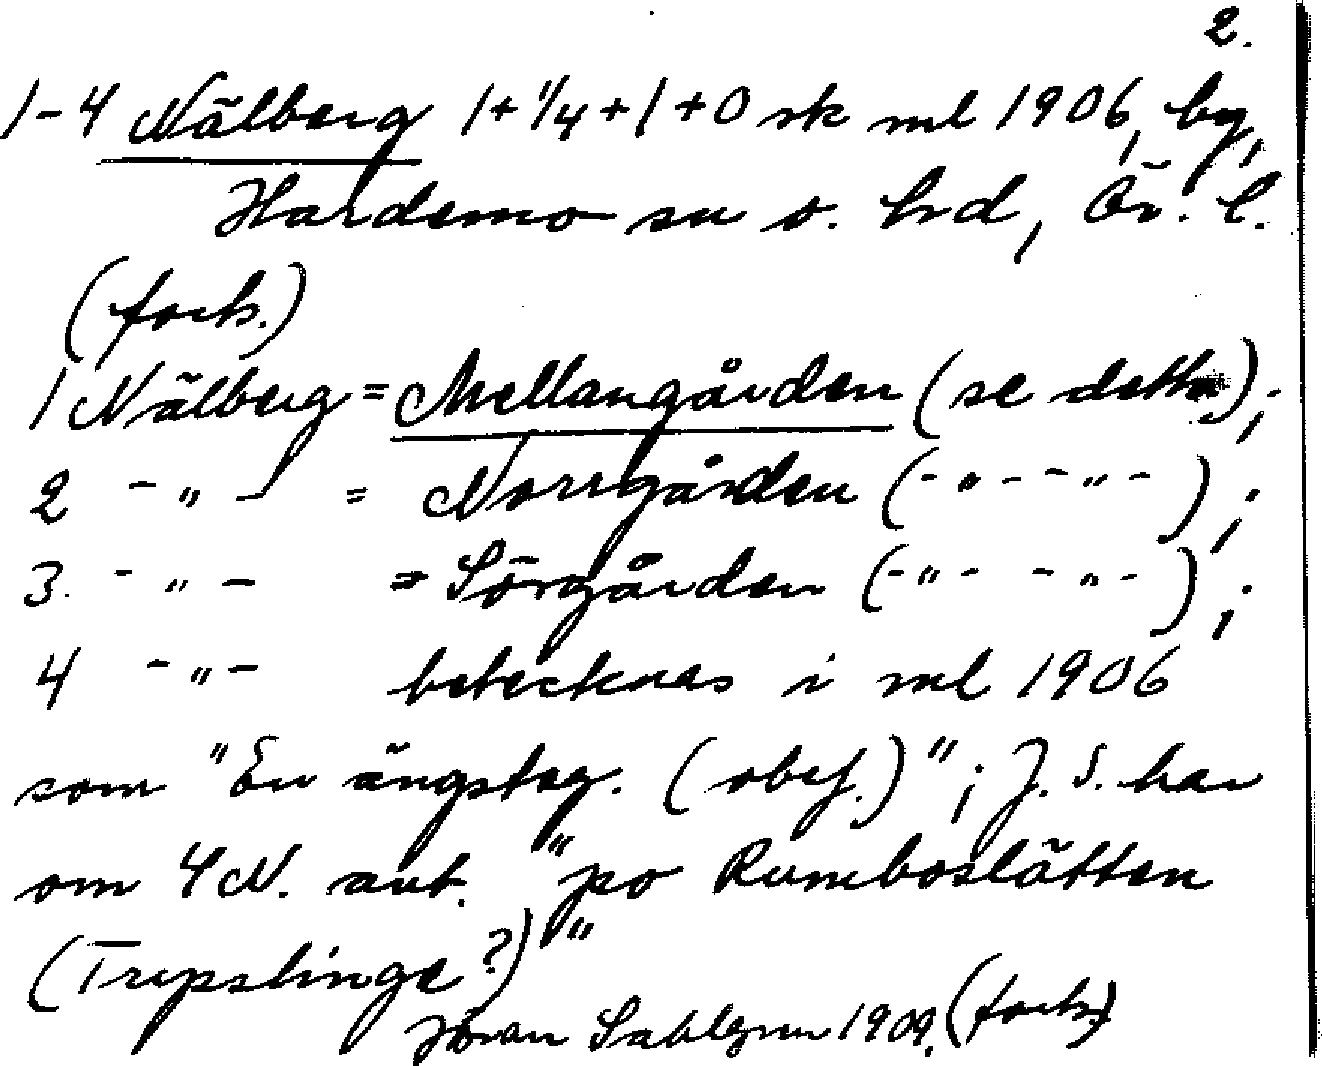 2.
1-4 Nälberg 1+1/4+1+0 sk ml 1906, by,
Hardemo sn o. hrd, Ör. l.
(forts.)
1 Nälberg = Mellangården (se detta);
2 -"- = Norrgården (-"- -"-);
3. -"- = Sörgården (-"- -"-);
4 -"- betecknas i ml 1906
som "En ängstag. (obef.)"; J. S. har
om 4 N. ant. "po Rumboslätten
(Trypslinge?)"
Jöran Sahlgren 1909. (forts)